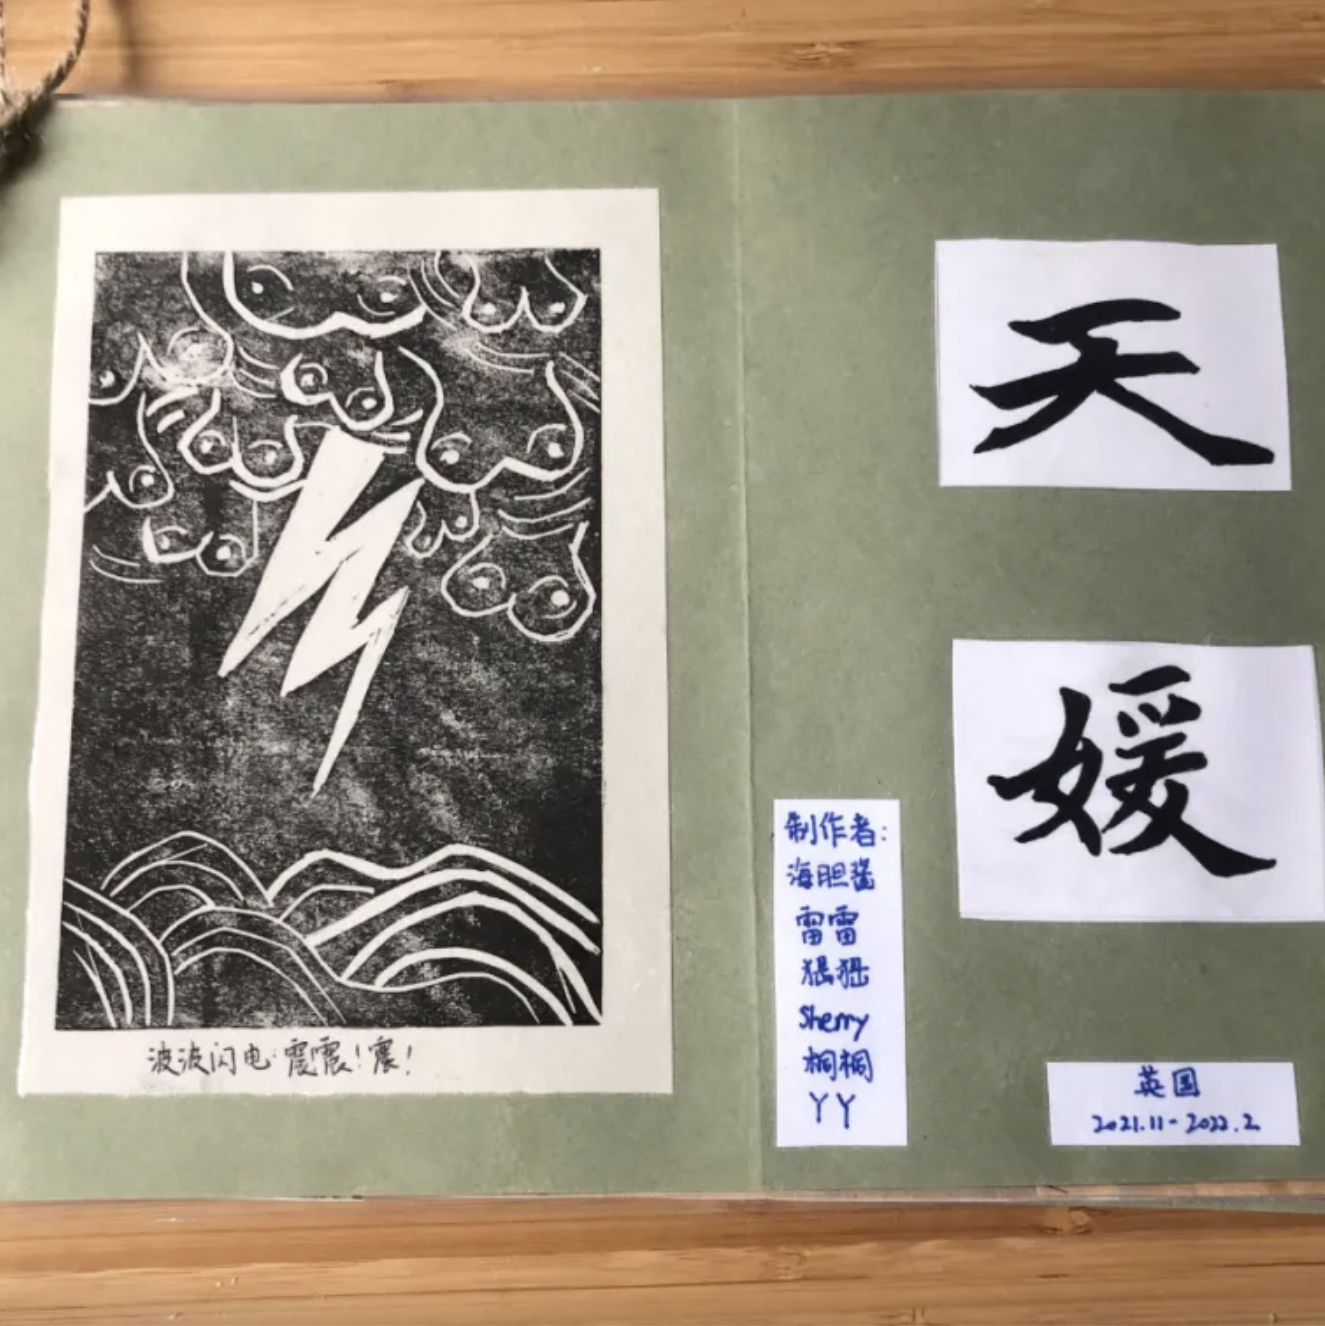 波波闪电:震震!震!
天
媛
制作者:
海胆酱
雷雷
猖猖
Sherry
桐桐
YY
英国
2021.11-2022.2